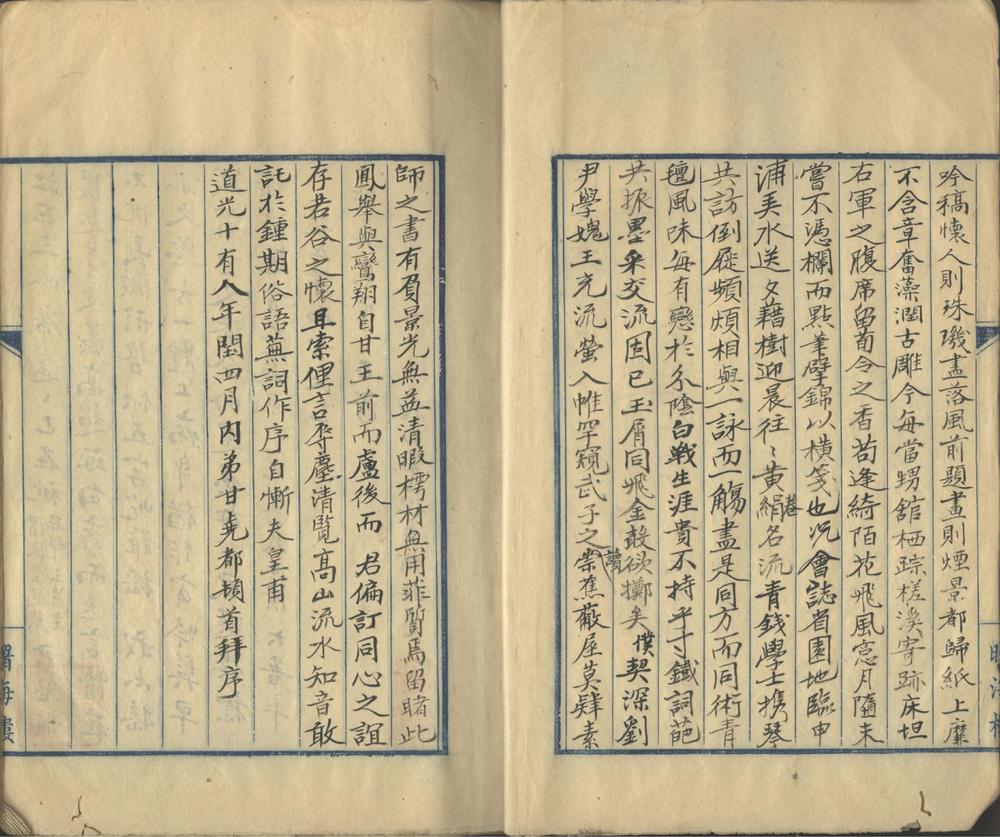 吟稿懷人則珠璣盡落風前題畫則煙景都歸紙上靡
不含章奮藻潤古雕今每當甥舘栖踪槎溪寄跡床坦
右軍之腹席留荀令之香苟逢綺陌花飛風窓月隨未
嘗不憑欄而點筆擘錦以橫箋也况會誌省園地臨申
浦美水送夕藉樹迎晨往〻黃絹名流青錢學士携琴
卷
共訪倒屣頻煩相與一詠而一觴盡是同方而同術青
氊風味每有戀於分陰白戰生涯貴不持乎寸鐵詞葩
共振墨采交流固已玉屑同飛金鼓欲擲矣僕契深劉
尹學媿王充流螢入帷罕窺武子之崇蕉蔽屋莫肄素
讀
師之書有負景光無益清暇樗材無用菲質焉留睹此
鳳舉與鸞翔自甘王前而盧後而 君偏訂同心之誼
存若谷之懷且索俚言辱塵清覽高山流水知音敢
託於鍾期俗語蕪詞作序自慚夫皇甫
道光十有八年閏四月内弟甘堯都頓首拜序
海樓